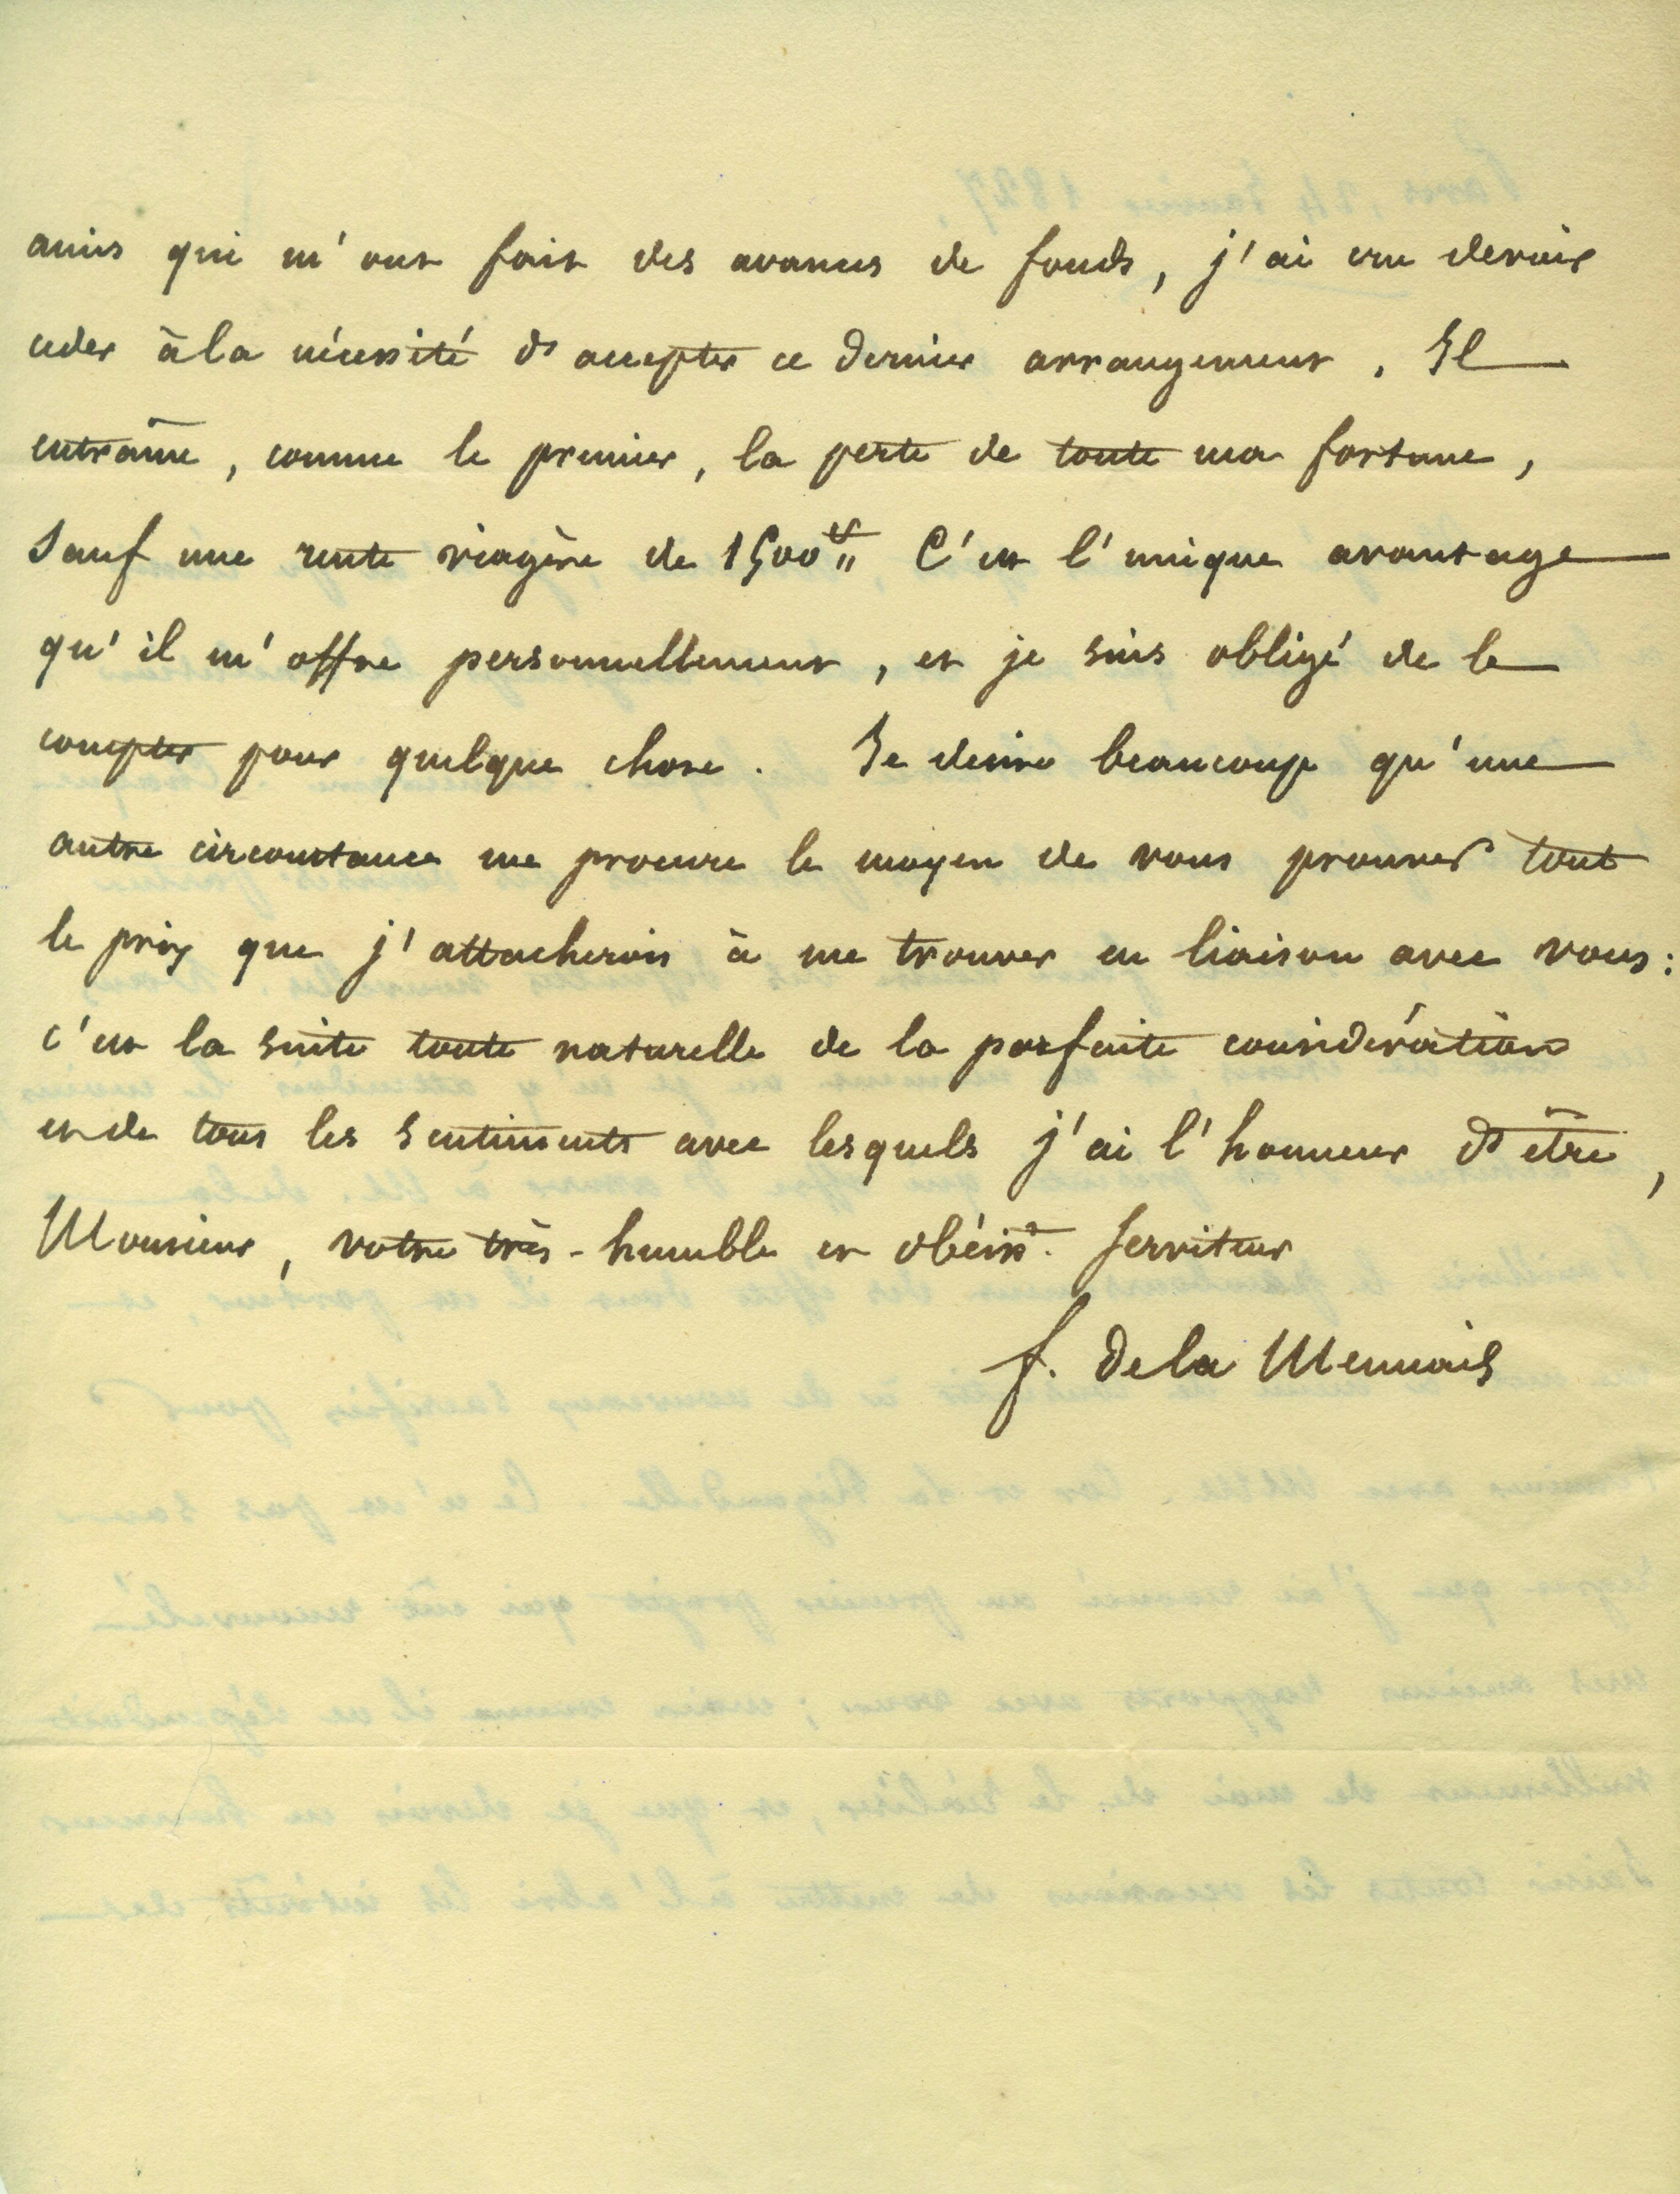 amis qui m'ont fait des avances de fonds, j'ai cru devoir
ceder à la nécessité d'accepter ce dernier arrangement. Il
entraîne, comme le premier, la perte de toute ma fortune,
sauf une rente viagère de 1500 C'est l'unique avantage
qu'il m'offre personnellement, et je suis obligé de le
compter pour quelque chose. Je desire beaucoup qu'une
autre circonstance me procure le moyen de vous prouver tout
le prix que j'attacherois à me trouver en liaison avec vous :
c'est la suite toute naturelle de la parfaite considération
et de tous les sentiments avec lesquels j'ai l'honneur d'être,
Monsieur, votre très-humble et obéisst. serviteur
f. de la Mennais